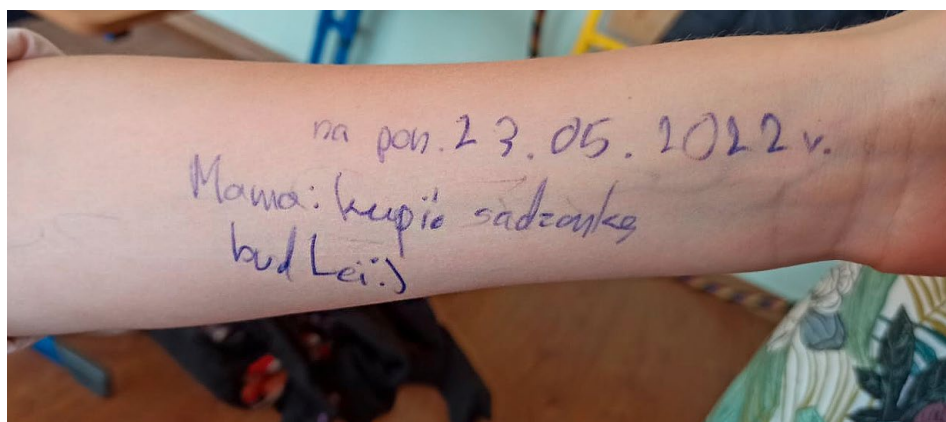 na pon. 23.05.2022 r.
Mama: kupić sadzonkę
budLei :)